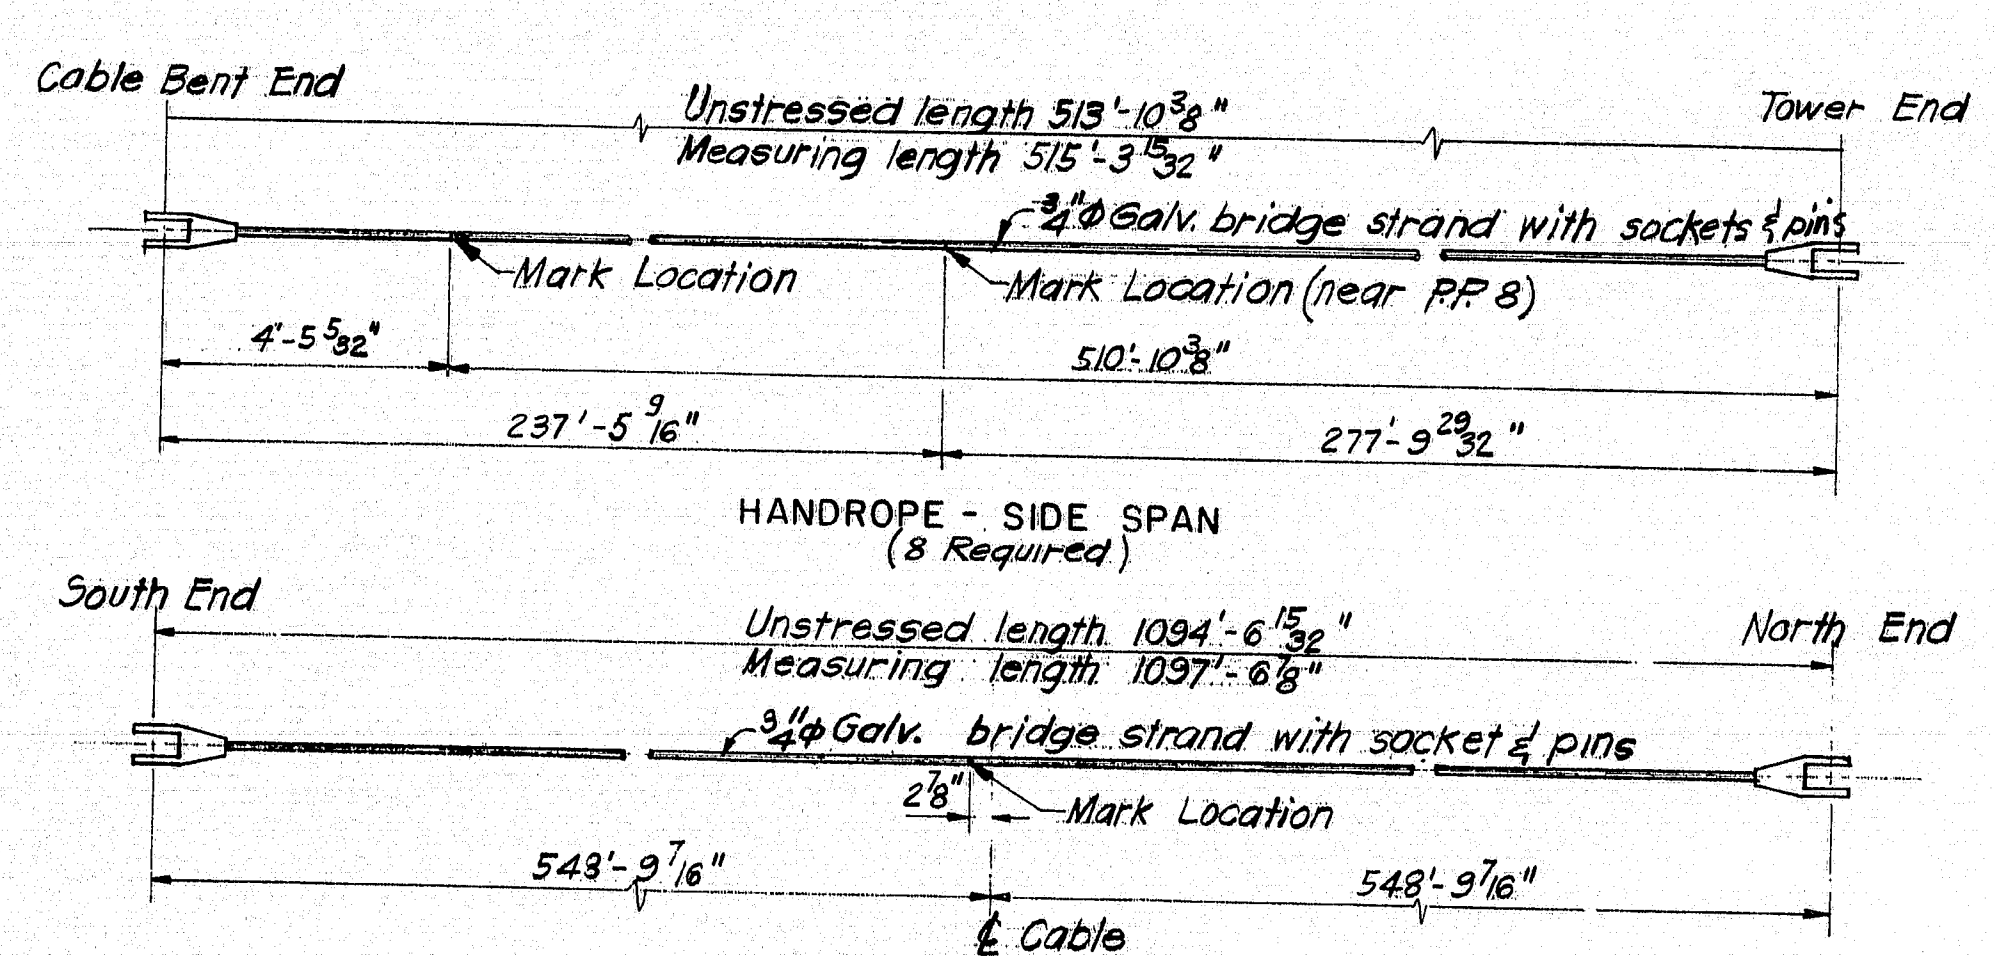 Cable Bent End
Tower End
Unstressed length 513'-10 3/8"
Measuring length 515'-3 15/32"
3/4"Φ Galv. bridge strand with sockets & pins
Mark Location
Mark Location (near P.P. 8)
4'-5 5/32"
510'-10 3/8"
237'-5 9/16"
277'-9 29/32"
HANDROPE - SIDE SPAN
(8 Required)
South End
North End
Unstressed length 1094'-6 15/32"
Measuring length 1097'-6 7/8"
3/4"Φ Galv. bridge strand with socket & pins
2 7/8"
Mark Location
548'-9 7/16"
548'-9 7/16"
℄ Cable